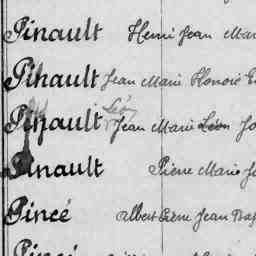 Pinault Henri Jean Mar
Pinault Jean Marie Honoré
Léon
Pinault Jean Marie Léon Jo
Pinault Pierre Marie Jo
Pincé Albert Pierre Jean Bap